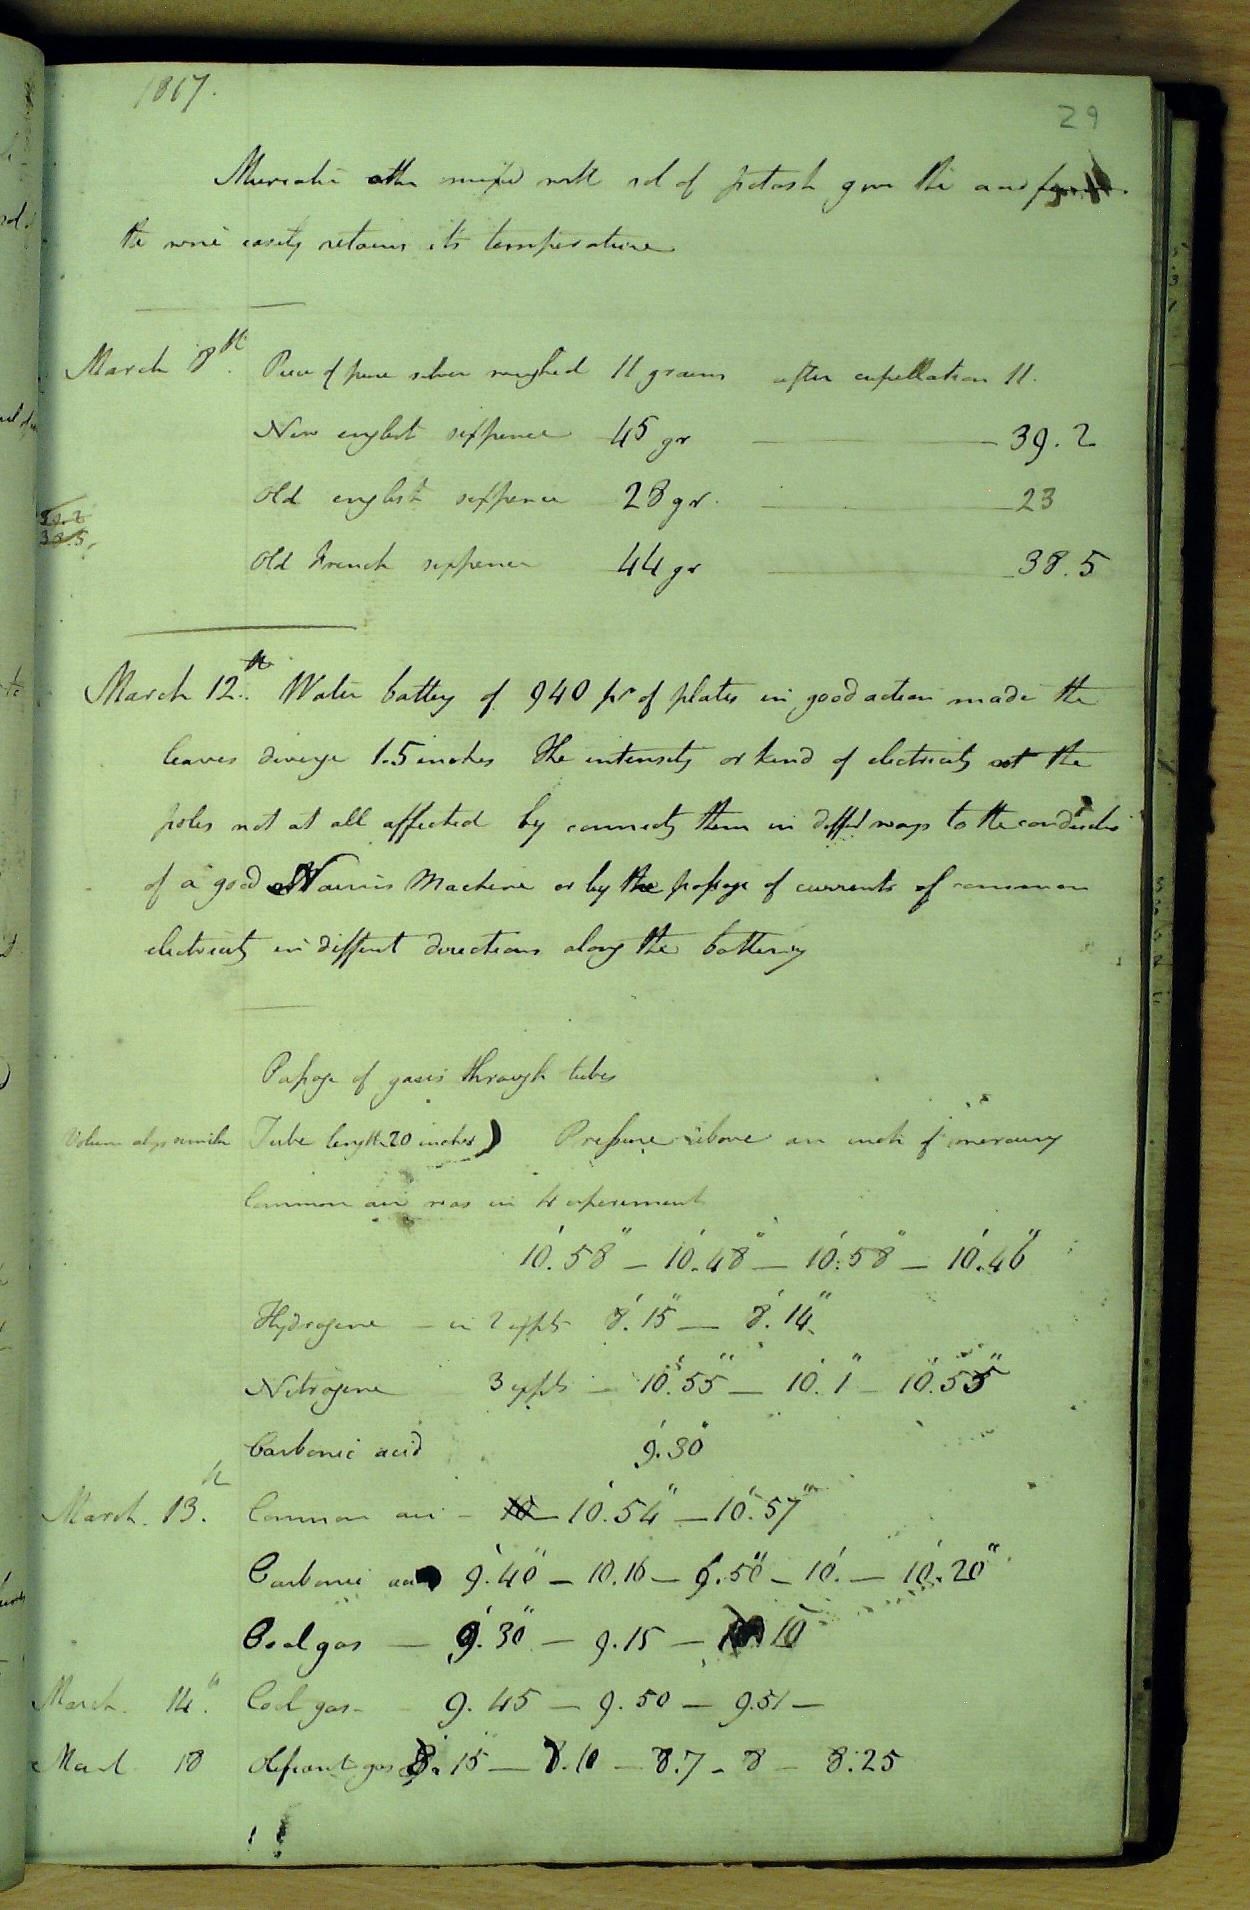 1817.
29
Muriatic ether mixed with sol of potash gives the
the wire easily retains its temperature
March 8th. Piece of pure silver weighed 11 grains after cupellation 11.
New english sixpence 45 gr 39.2
Old english sixpence 28 gr. 23
39.2
38.5
Old French sixpence 44 gr 38.5
March 12th. Water battery of 940 pr of plates in good action made the
leaves diverge 1.5 inches The intensity or kind of electricity at the
poles not at all affected by connectg them in difft ways to the conductor
of a good Nairns Machine or by the passage of currents of common
electricity in different directions along the battery
Passage of gases through tubes
Volume always similar Tube length 20 inches) Pressure above an inch of mercury
Common air was in 4 experiments
10'.58" — 10'.48" — 10'.58" — 10'.46"
Hydrogene — in 2 expts 8'.15" — 8'.14"
Nitrogene 3 expts — 10'.55" — 10'.1" — 10'.55"
Carbonic acid 9'.30"
March. 13th. Common air — 10 — 10'.54" — 10'.57"
Carbonic acid 9'.40" — 10.16 — 9'.50" — 10'. — 10'.20"
Coal gas — 9'.30" — 9.15 — 10
March. 14". Coal gas — 9.45 — 9.50 — 9.51 —
March 18 Olefiant gas 8'.15" — 8.10 — 8.7 — 8 — 8.25